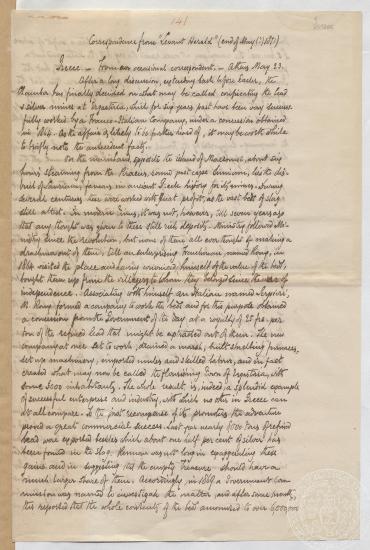 141
Correspondence from "Levant Herald" (end of May (?) 1871)
Greece. — From an occasional correspondent. — Athens May 23.
After a long discussion, extending back before Easter, the
Chamber has finally decided on what may be called confiscating the lead
& silver mines at Ergasteria, which for six years past have been very success-
fully worked by a Franco-Italian Company, under a concession obtained
in 1864. As the affair is likely to be further heard of, it may be worth while
to briefly note the antecedent facts.
On the mainland, opposite the island of Macronisi, about six
hours' steaming from the Piraeus, round past Cape Sunium, lies the dis-
trict of Laurium, famous in ancient Greek history for its mines. During
several centuries these were worked with great profit, as the vast beds of slag
still attest. In modern times, it was not, however, till seven years ago
that any thought was given to these still rich deposits. Ministry followed Mi-
nistry since the Revolution, but none of them all ever thought of making a
drachma out of them, till an enterprising Frenchman, named
1864 visited the place and having convinced himself of the value of the beds,
bought them up from the villagers to whom they belonged since the
independence. Associating with himself an Italian named Serpieri,
M. formed a company to work the beds and for this purpose obtained
a concession from the Government of the day at a royalty of 25 frs. per
ton of the refined lead that might be extracted out of them. The new
company at once set to work, drained a marsh, built smelting furnaces,
set up machinery, imported mules and skilled labour, and in fact
created what may now be called the flourishing town of Ergasteria, with
some 3000 inhabitants. The whole result is, indeed, a splendid example
of successful enterprise and industry, with which no other in Greece can
at all compare. To the just recompense of its promoters, the adventure
proved a great commercial success. Last year nearly 9000 tons of refined
lead were exported besides which about one half per cent of silver has
been found in the slag. Rumour was not long in exaggerating these
gains and in suggesting that the empty Treasury should have a
much larger share of them. Accordingly, in 1869 a Government Com-
mission was named to investigate the matter, and after some months
this reported that the whole contents of the beds amounted to over